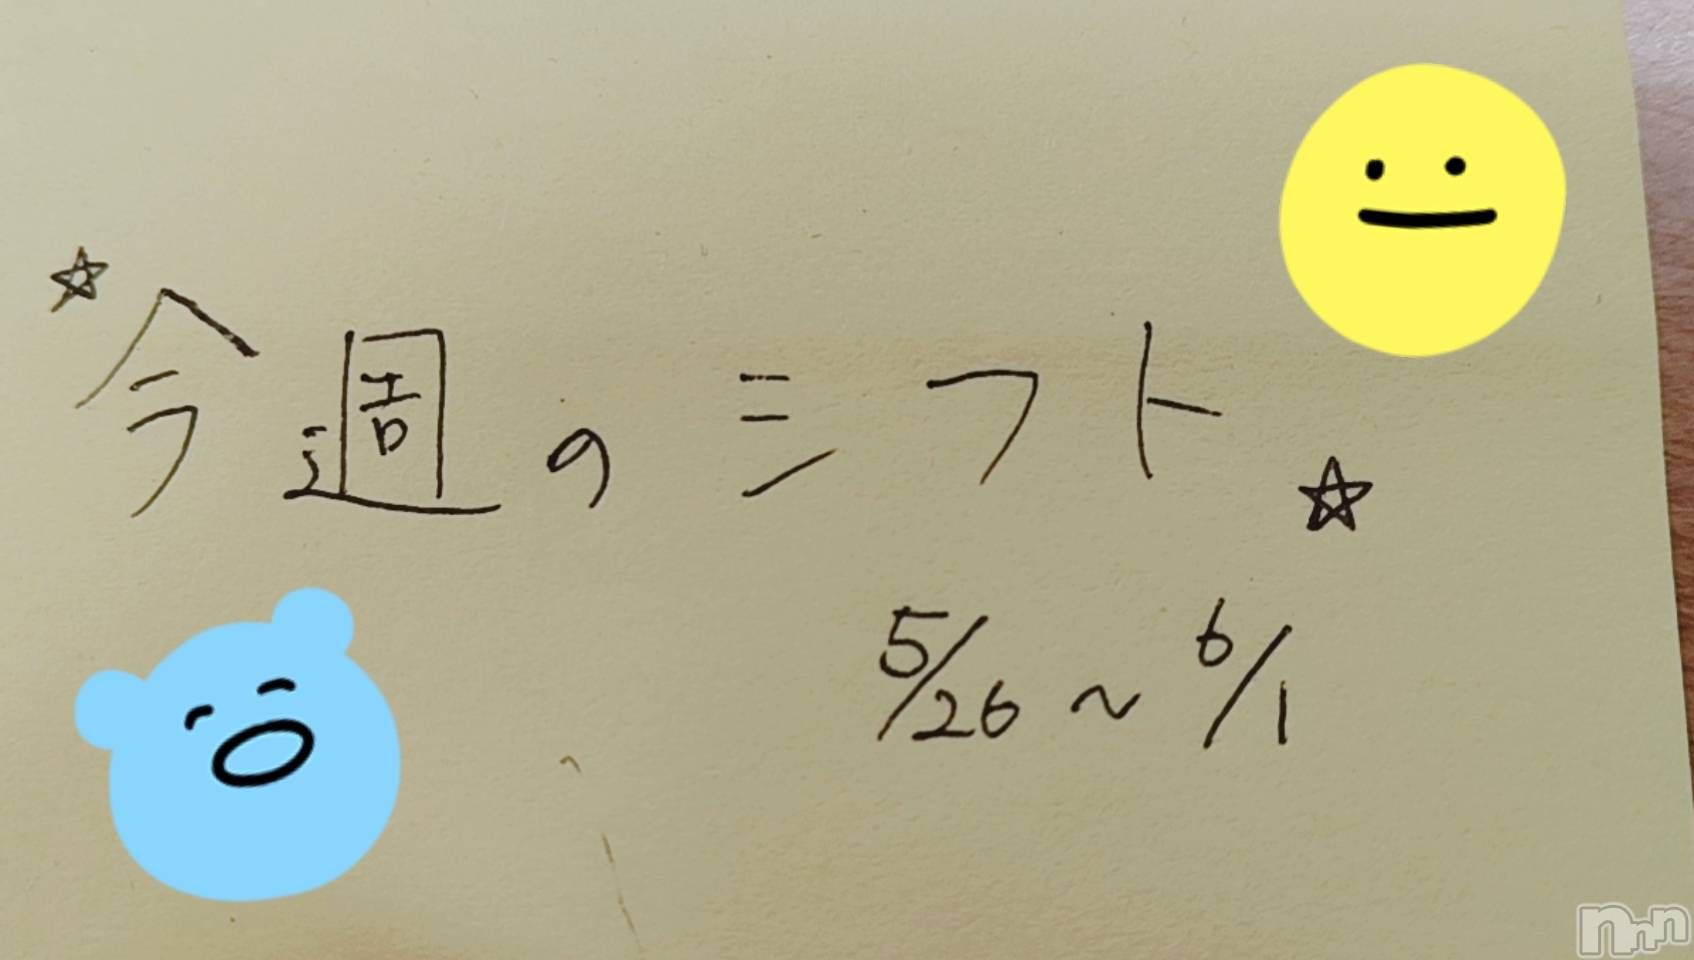 ☆今週のシフト☆
5/26~6/1
nnn